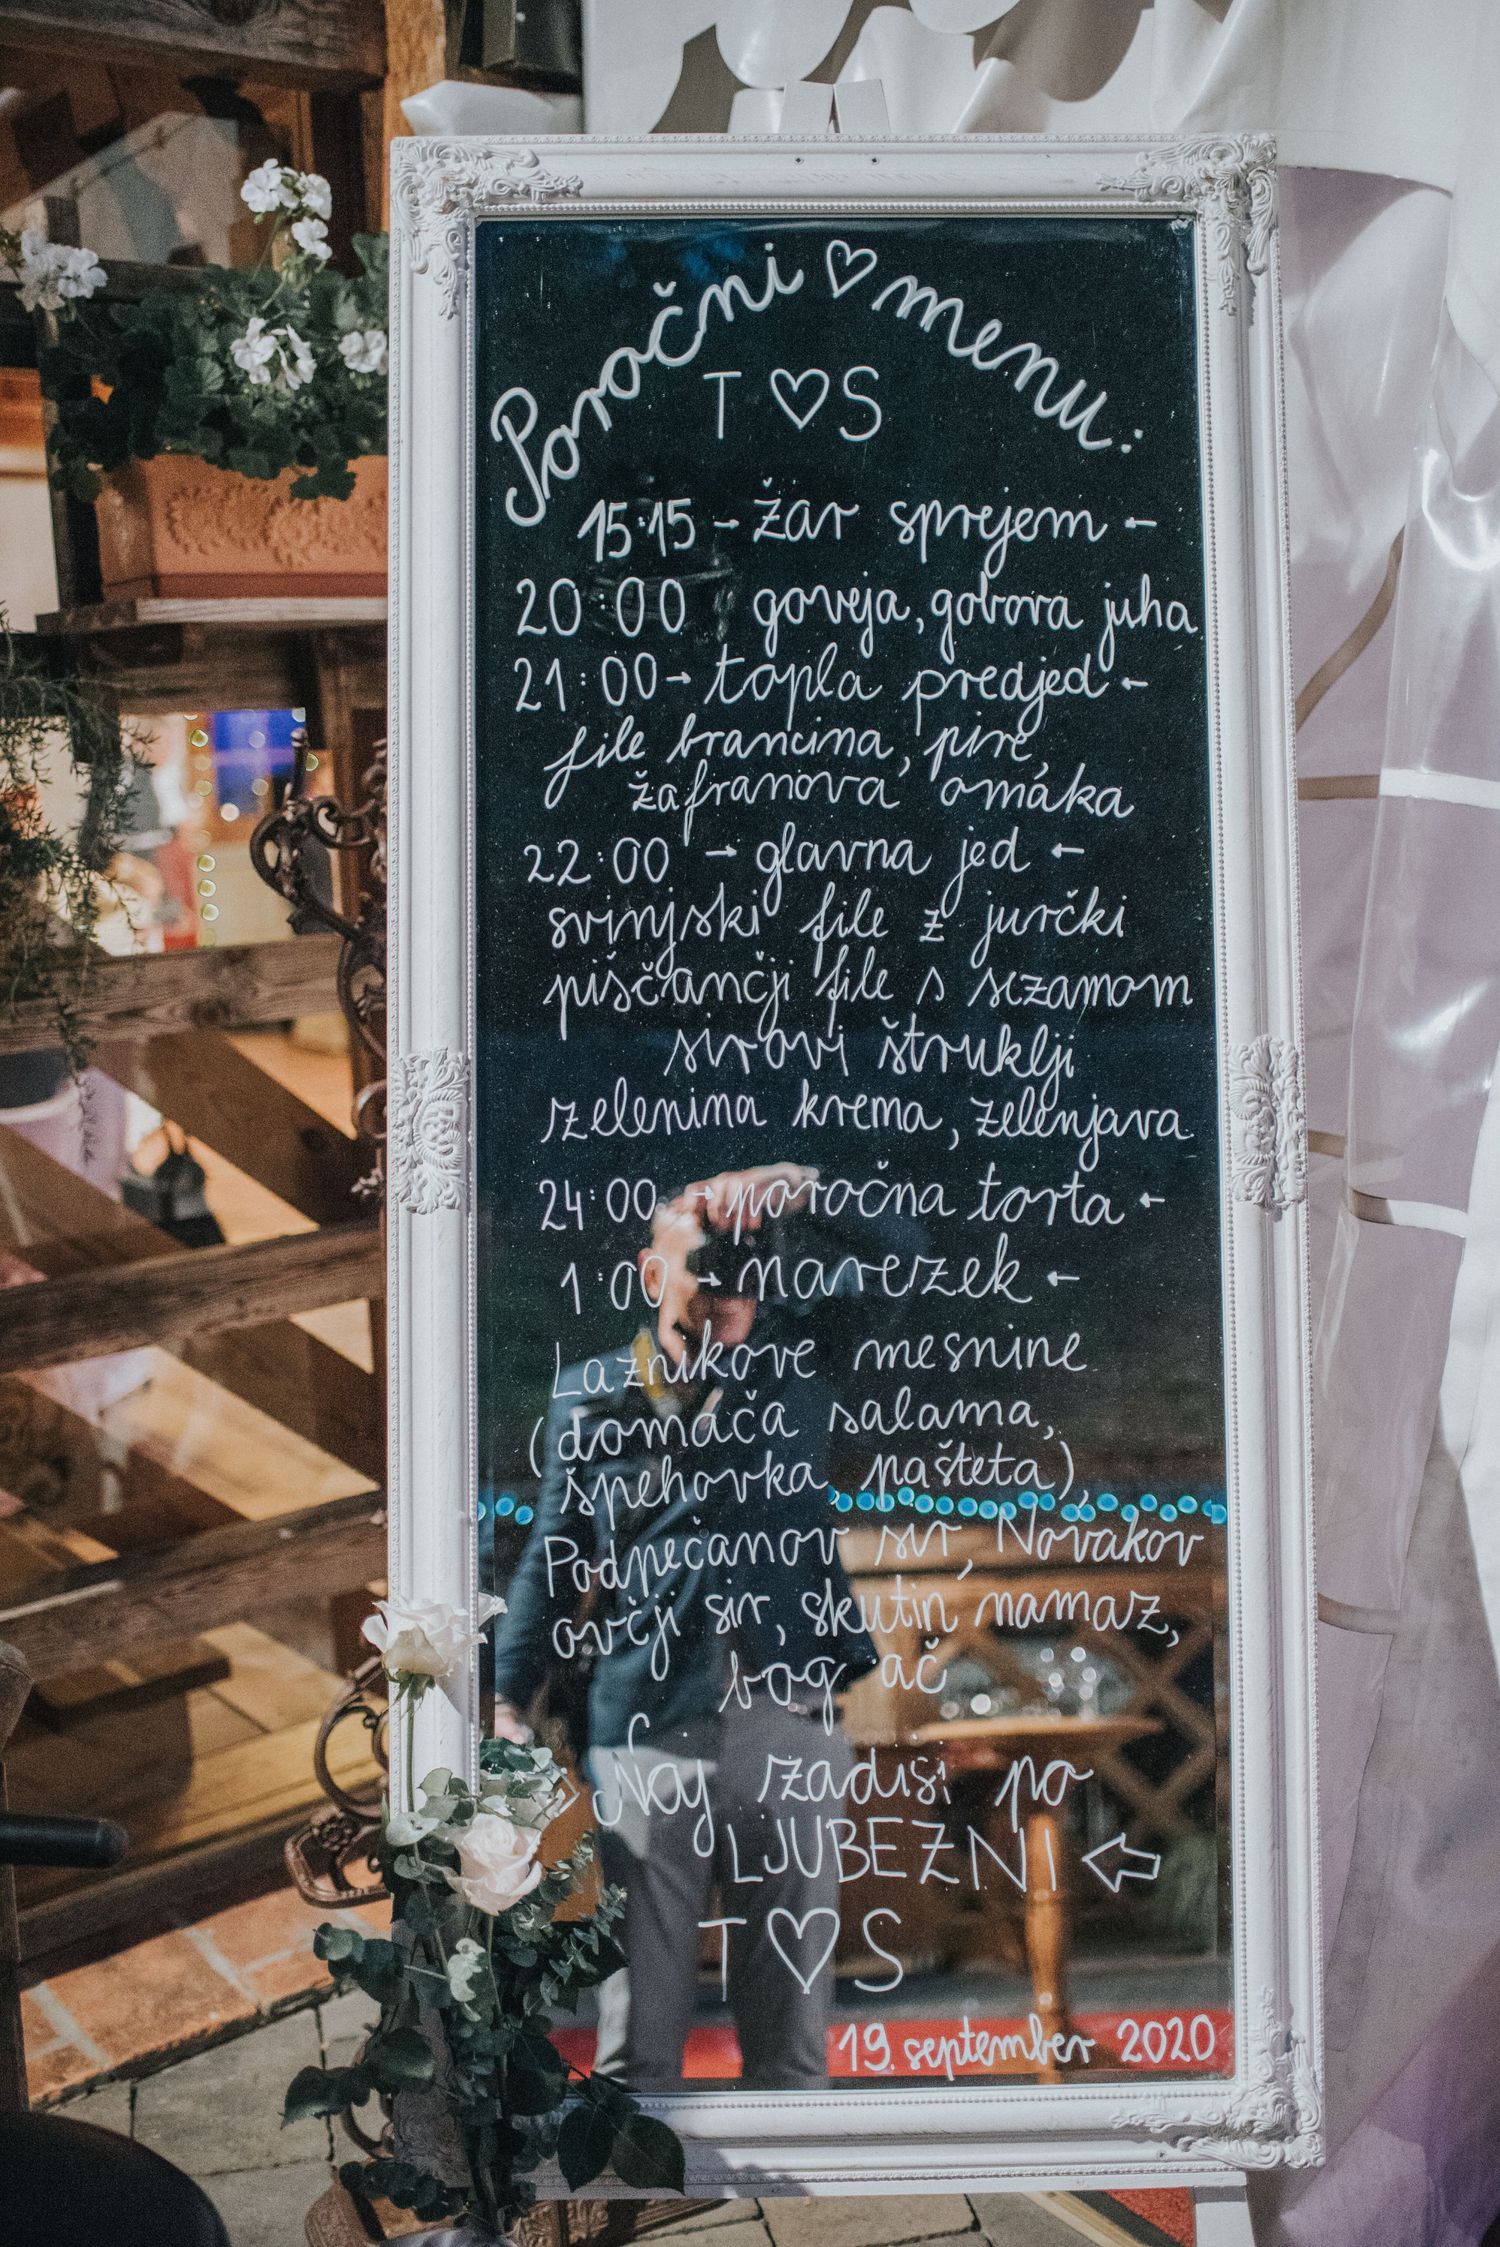 Poročni ♡ menu:
T ♡ S
15:15 → žar sprejem ←
20:00 goveja, gobova juha
21:00 → topla predjed ←
file brancina, pire,
žafranova omáka
22:00 → glavna jed ←
svinjski file z jurčki
piščančji file s sezamom
sirovi štruklji
zelenina krema, zelenjava
24:00 → poročna torta ←
1:00 → narezek ←
Laznikove mesnine
(domača salama,
špehovka, pašteta),
Podpečanov sir, Novakov
ovčji sir, skutin namaz,
bog ač
Naj zadiši po
LJUBEZNI ⇦
T ♡ S
19. september 2020